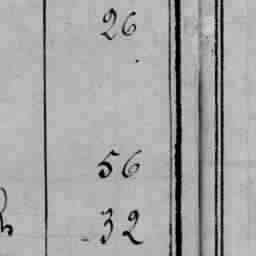 26
56
32